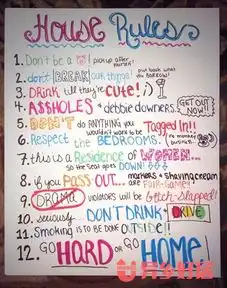 House Rules
1. Don't be a ! pick up after yourself!
2. don't BREAK our things! put back what you borrow!
3. DRINK till they're CUTE! ;)
4. A$$HOLES + debbie downers... GET OUT NOW!!
5. DON'T do ANYTHING you wouldn't want to be Tagged In!!
6. Respect the BEDROOMS. no monkey business.
7. this is a Residence of WOMEN...
So the Seat goes DOWN!
8. if you PASS OUT... markers + shaving cream are FAIR-GAME!
9. DRAMA violators will be Bitch-Slapped!
10. seriously DON'T DRINK + DRIVE
11. Smoking is to be done OUTSIDE!
12. GO HARD or GO HOME